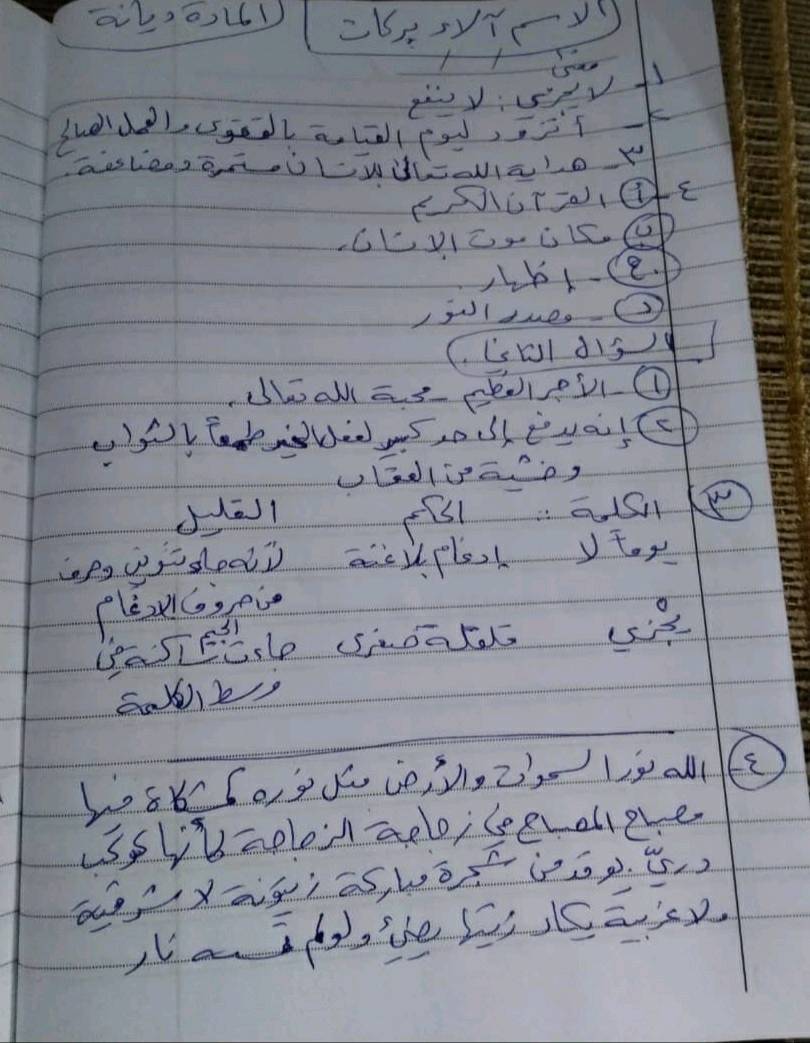 الاسم آلاء بركات المادة ديانة
معنى
١- لا يجزي: لا ينفع
٢- أتزود ليوم القيامة بالتقوى والعمل الصالح
٣- هداية الله تعالى للانسان مستمرة ومضاعفة.
٤- أ القرآن الكريم
ب مكان موت الانسان.
ج- إظهار.
د- مصدر النور
السؤال الثاني.
١- الأجر العظيم - محبة الله تعالى.
٢ إنه يدفع إلى حد كبير لفعل الخير طمعاً بالثواب
وخشية من العقاب
٣ الكلمة : الحكم القليل
يوماً لا إدغام بلا غنة لأنه جاء تنوين وحرف
من حروف الادغام
يجْزي قلقلة صغرى جاءت الجيم ساكنة في
وسط الكلمة
٤ الله نور السموات والأرض مثل نوره كمشكاة فيها
مصباح المصباح في زجاجة الزجاجة كأنها كوكب
دريّ يوقد من شجرة مباركة زيتونة لا شرقية
ولا غربية يكاد زيتها يضيئ ولو لم تمسسه نار